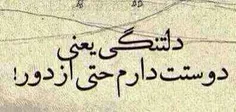 دلتنگی یعنی
دوستت دارم حتی از دور!